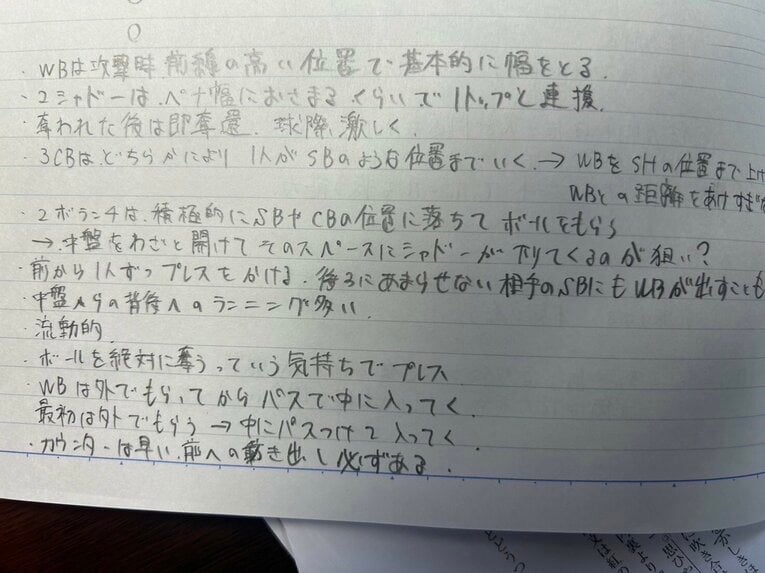 ・WBは攻撃時 前線の高い位置で基本的に幅をとる.
・2シャドーは.ペナ幅におさまるくらいで1トップと連携.
・奪われた後は即奪還.球際激しく.
・3CBは.どちらかにより1人がSBのような位置までいく.→WBをSHの位置まで上げ
WBとの距離をあけすぎ
・2ボランチは.積極的にSBやCBの位置に落ちてボールをもらう
→中盤をわざと開けてそのスペースにシャドーが下りてくるのが狙い?
・前から1人ずつプレスをかける.後ろにあまらせない 相手のSBにもWBが出すことも
・中盤からの背後へのランニング多い.
・流動的.
・ボールを絶対に奪うっていう気持ちでプレス.
・WBは外でもらってからパスで中に入ってく.
最初は外でもらう→中にパスつけて入ってく.
・カウンターは早い.前への動き出し必ずある.